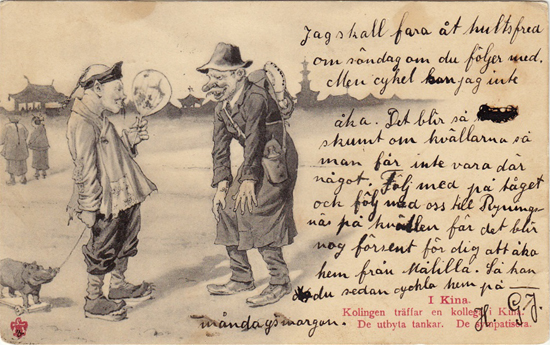 Jag skall fara åt hultsfred
om söndag om du följer med.
Men cykel kan jag inte
åka. Det blir så
skumt om kvällarna så
man får inte vara där
något. Följ med på tåget
och följ med oss till Rynings-
näs på kvällen för det blir
nog försent för dig att åka
hem från Målilla. Så kan
du sedan cykla hem på
måndagsmorgon.
H. G. J.
I Kina.
Kolingen träffar en kollega i Kina.
De utbyta tankar. De sympatisera.